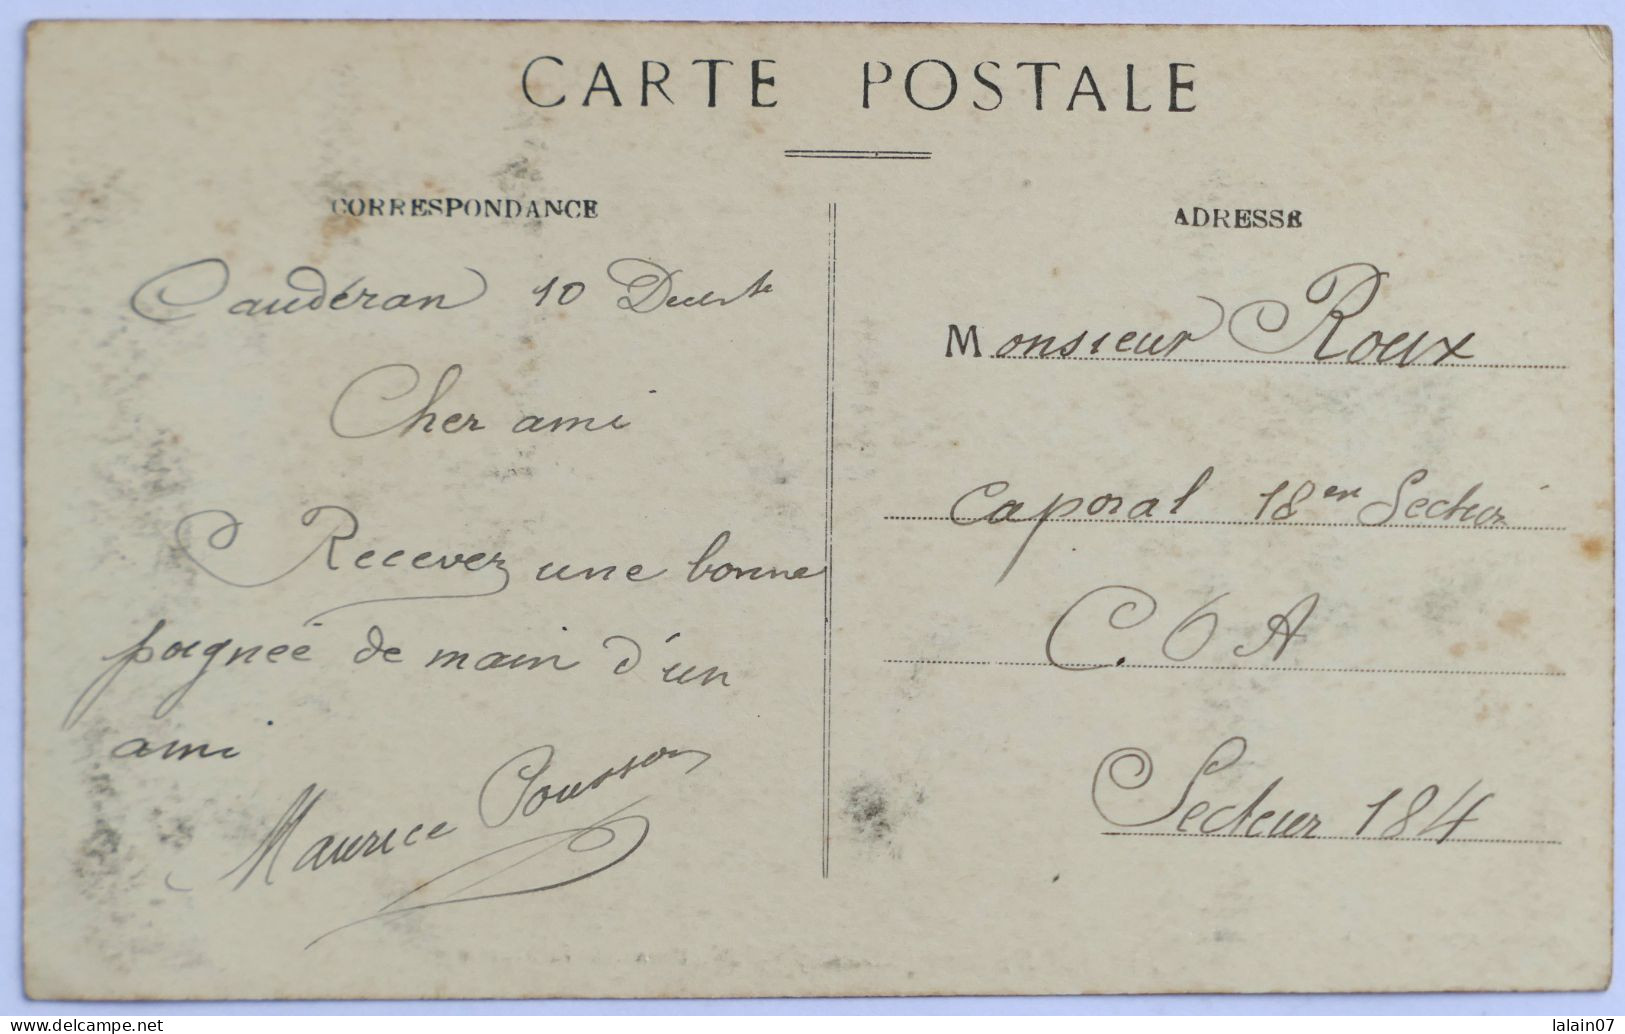 CARTE POSTALE
CORRESPONDANCE
Caudéran 10
Cher ami
Recevez une bonne
poignée de main d'un
ami
Maurice Pousson
ADRESSE
Monsieur Roux
Caporal 18em Section
C. O A
Secteur 184
www.delcampe.net
lalain07